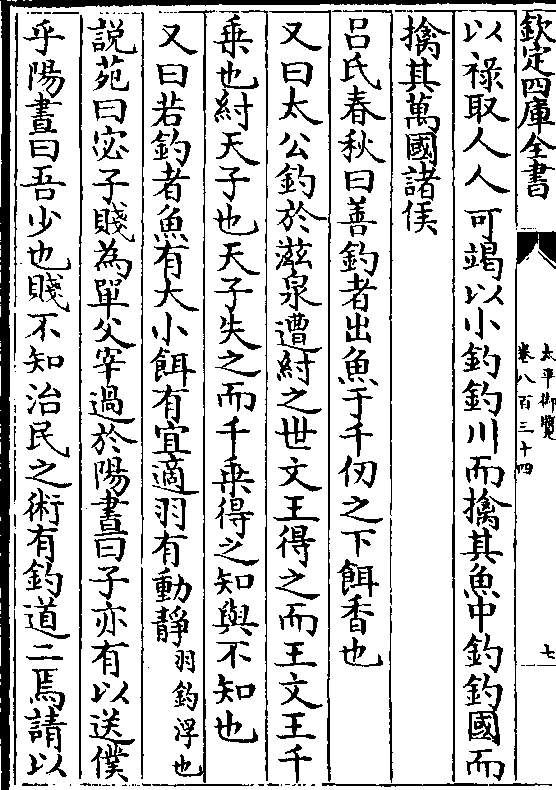 欽定四庫全書
太平御覽
卷八百三十四
七
以祿取人人可竭以小釣釣川而擒其魚中釣釣國而
擒其萬國諸侯
吕氏春秋曰善釣者出魚于千仞之下餌香也
又曰太公釣於滋泉遭紂之世文王得之而王文王千
乗也紂天子也天子失之而千乗得之知與不知也
又曰若釣者魚有大小餌有宜適羽有動靜羽釣浮也
說苑曰宓子賤為單父宰過於陽晝曰子亦有以送僕
乎陽晝曰吾少也賤不知治民之術有釣道二焉請以